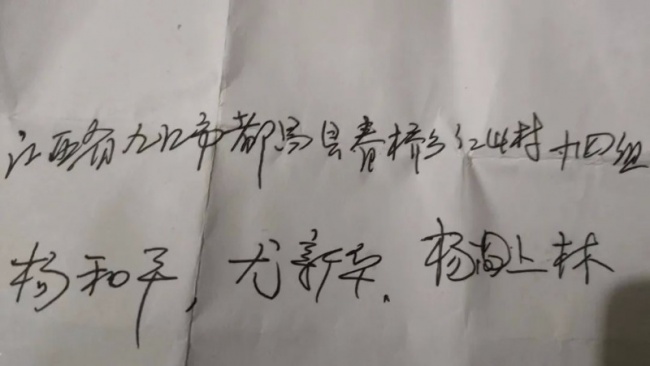 江西省九江市都昌县春桥乡红山村十四组
杨和平，尤新华、杨 上林